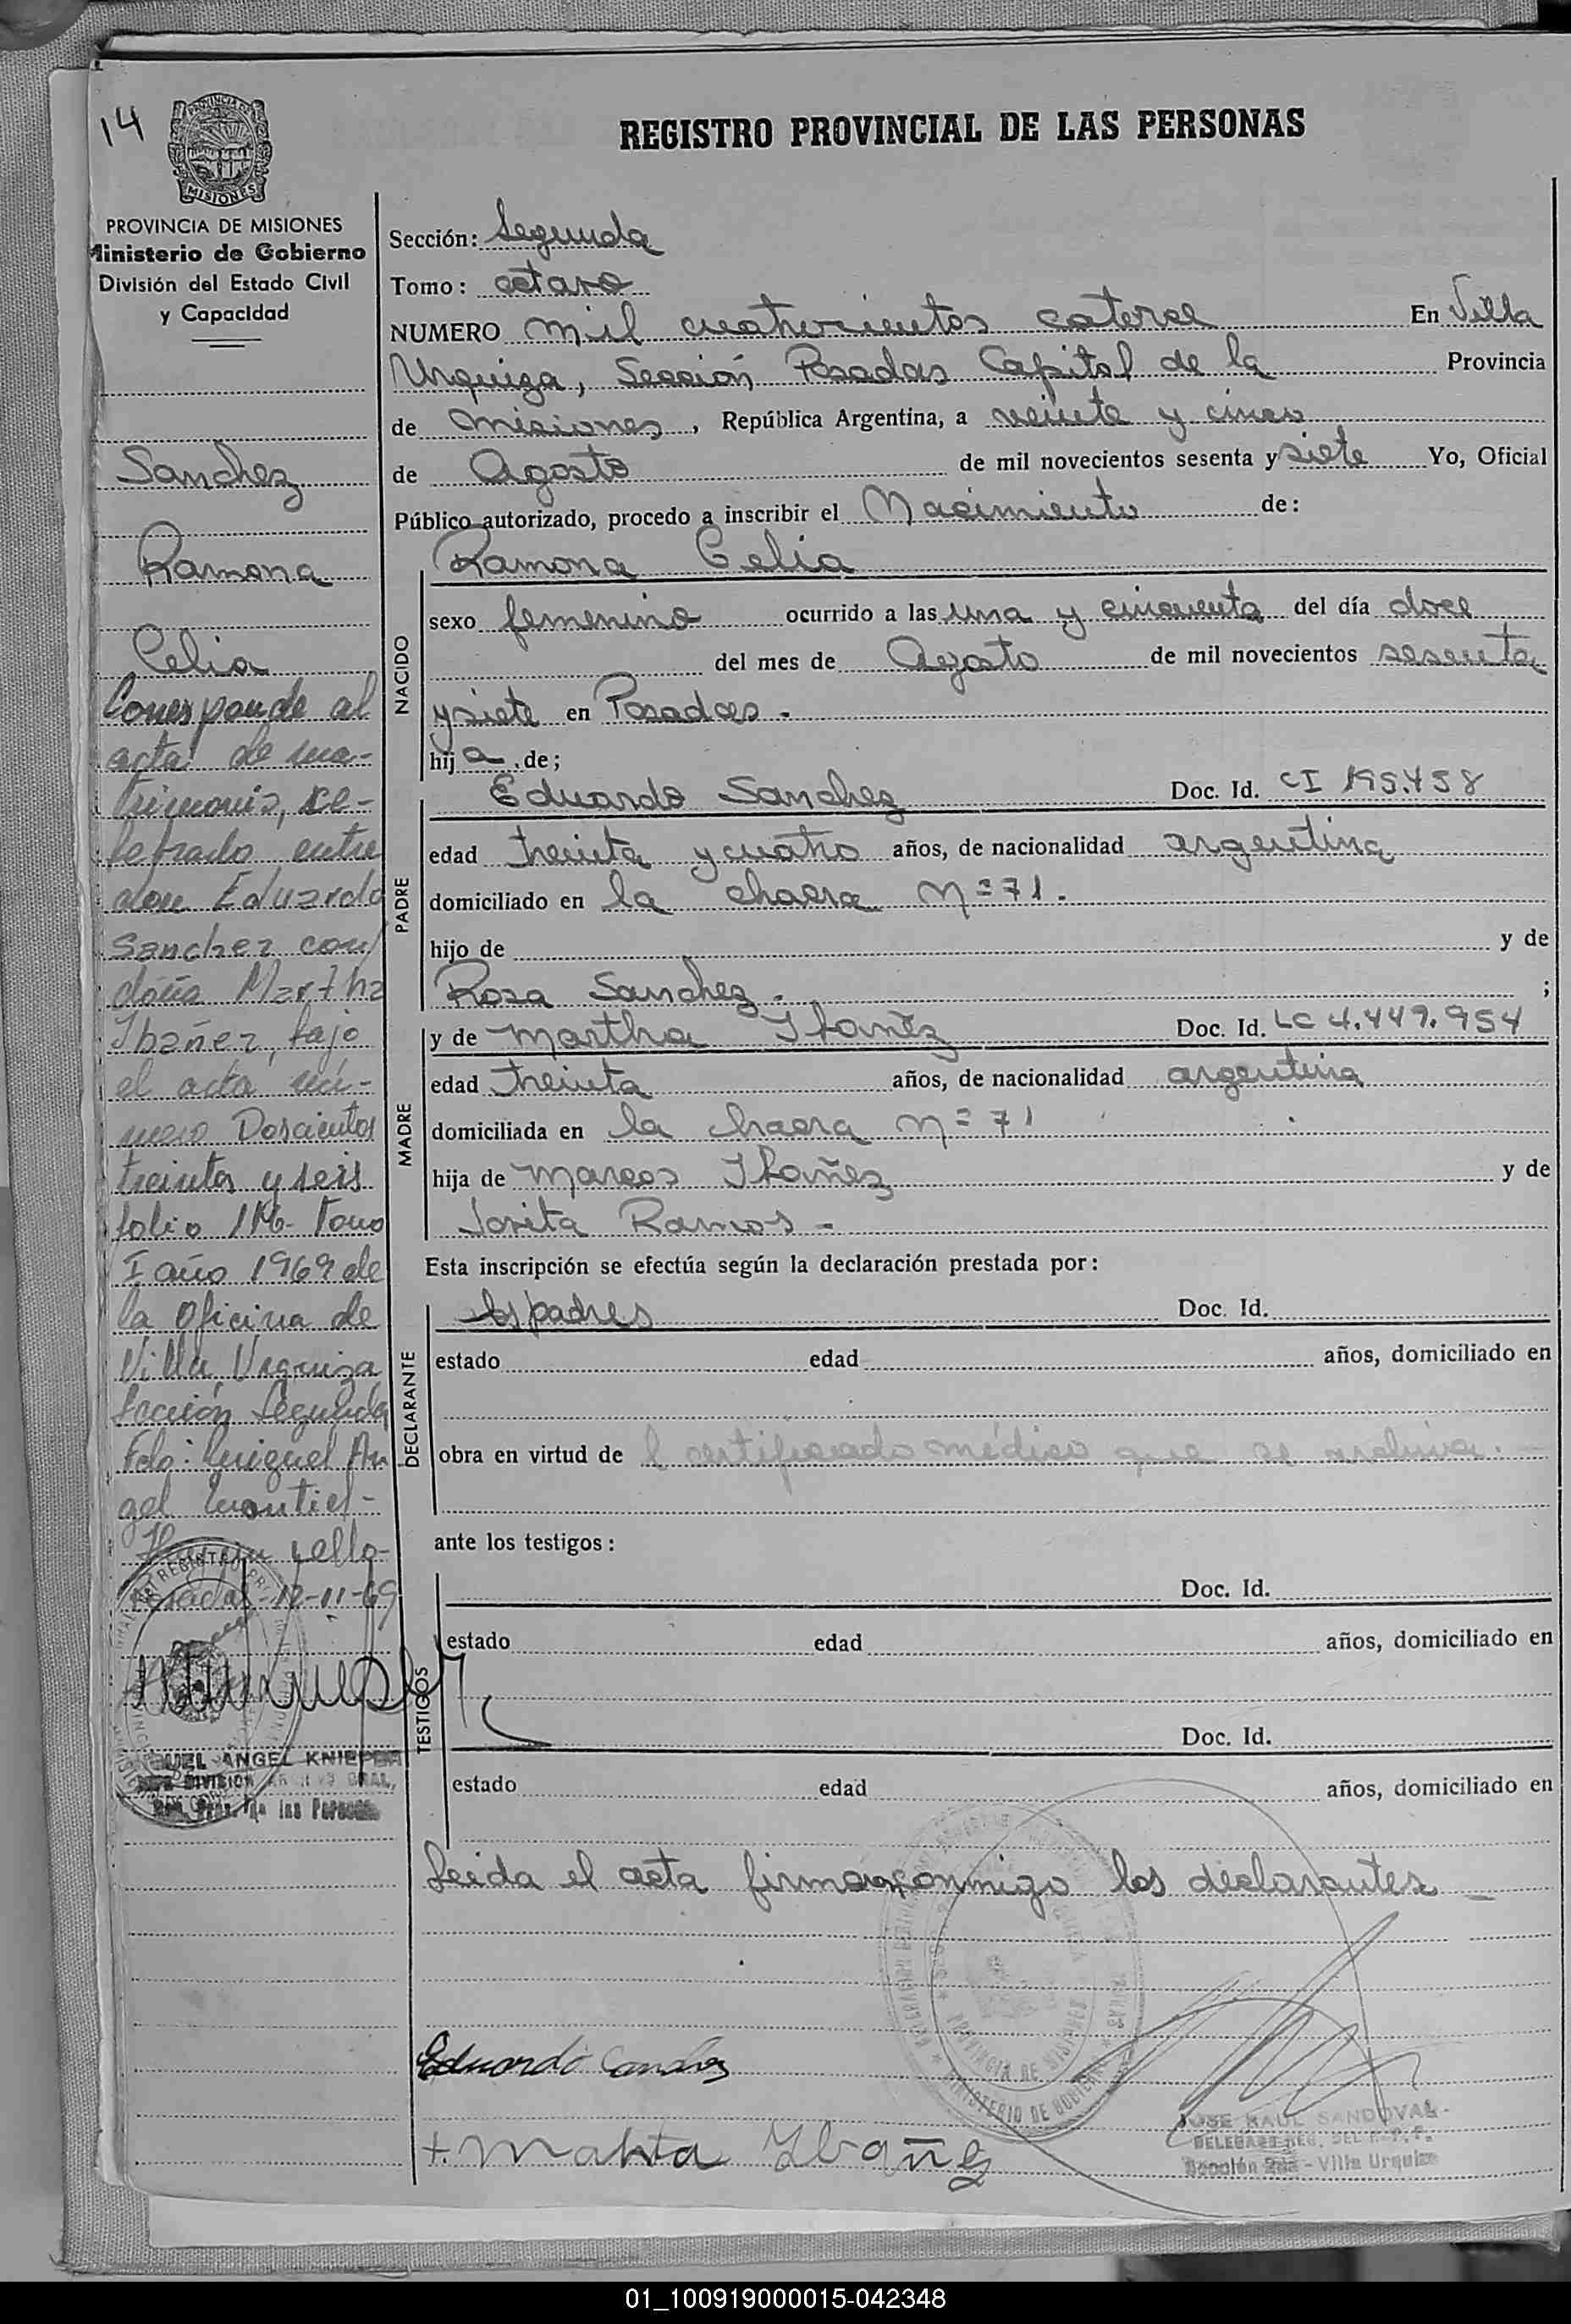 14
PROVINCIA DE
MISIONES
REGISTRO PROVINCIAL DE LAS PERSONAS
PROVINCIA DE MISIONES
Ministerio de Gobierno
División del Estado Civil
y Capacidad
Sanchez
Ramona
Celia
Corresponde al
acta de ma-
trimonio, ce-
lebrado entre
don Eduardo
Sanchez con
doña Martha
Ibañez, bajo
el acta nú-
mero Doscientos
treinta y seis
folio 116- Tomo
I año 1969 de
la Oficina de
Villa Urquiza
Sección Segunda
Fdo: Miguel An
gel Montiel-
Hay un sello-
Posadas-12-11-69
UEL ANGEL KNIEPER
DIVISION GRAL,
de las Personas
Sección: Segunda
Tomo: octavo
NUMERO mil cuatrocientos catorce En Villa
Urquiza, Sección Posadas Capital de la Provincia
de Misiones, República Argentina, a veinte y cinco
de Agosto de mil novecientos sesenta y siete Yo, Oficial
Público autorizado, procedo a inscribir el Nacimiento de:
Ramona Celia
NACIDO
sexo femenino ocurrido a las una y cincuenta del día doce
del mes de Agosto de mil novecientos sesenta
y siete en Posadas.
hija de;
PADRE
Eduardo Sanchez Doc. Id. CI 195.458
edad treinta y cuatro años, de nacionalidad argentina
domiciliado en la chacra Nº 71.
hijo de y de
Rosa Sanchez. ;
MADRE
y de Martha Ibañez Doc. Id. LC 4.449.954
edad treinta años, de nacionalidad argentina
domiciliada en la chacra Nº 71
hija de Marcos Ibañez y de
Ramos -
Esta inscripción se efectúa según la declaración prestada por:
DECLARANTE
los padres Doc. Id.
estado edad años, domiciliado en
obra en virtud de l certificado médico que se archiva.-
ante los testigos:
TESTIGOS
Doc. Id.
estado edad años, domiciliado en
Doc. Id.
estado edad años, domiciliado en
Leida el acta firman conmigo los declarantes -
PROVINCIA DE MISIONES
MINISTERIO DE GOBIERNO
Eduardo Sanchez
+. Mahta Ybañez
JOSE RAUL SANDOVAL
DELEGADO REG. DEL R.P.P.
Sección 2da - Villa Urquiza
01_100919000015-042348